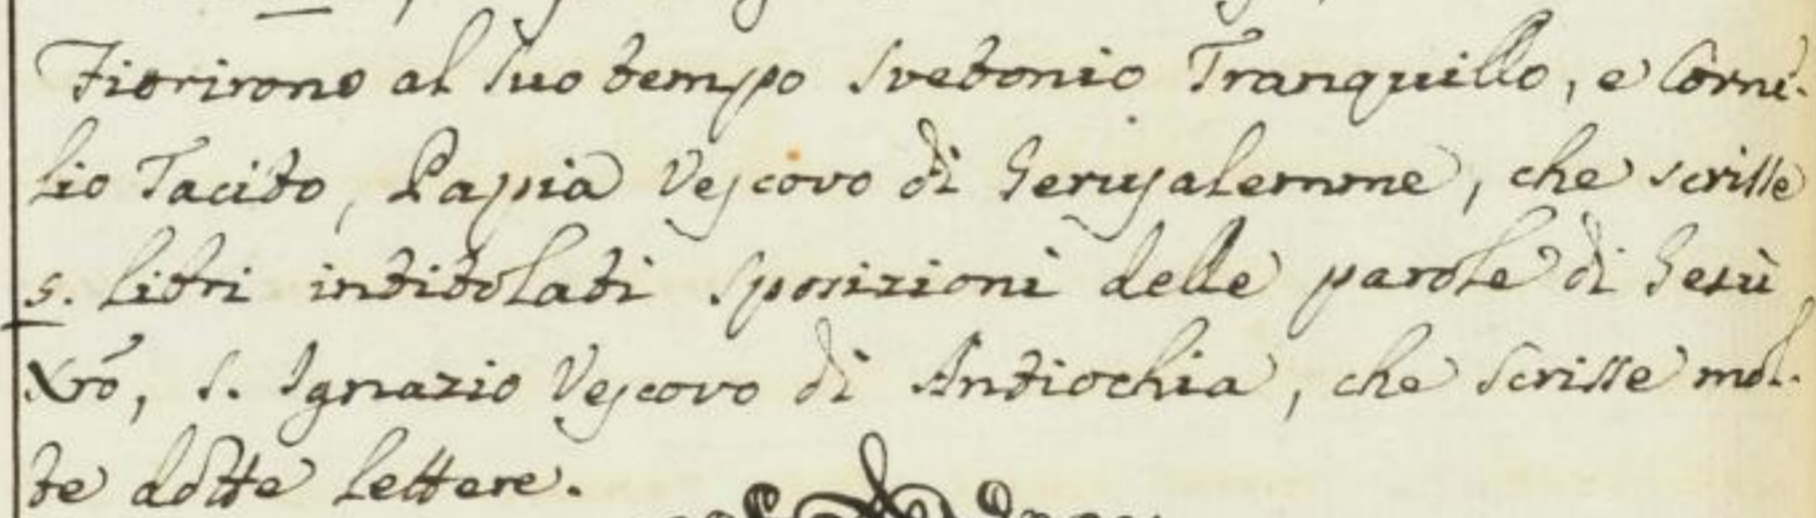 Fiorirono al suo tempo Svetonio Tranquillo, e Corne-
lio Tacito, Papia Vescovo di Gerusalemme, che scrisse
5. libri intitolati Sposizioni delle parole di Gesù
Xrõ, S. Ignazio Vescovo di Antiochia, che scrisse mol-
te dotte lettere.